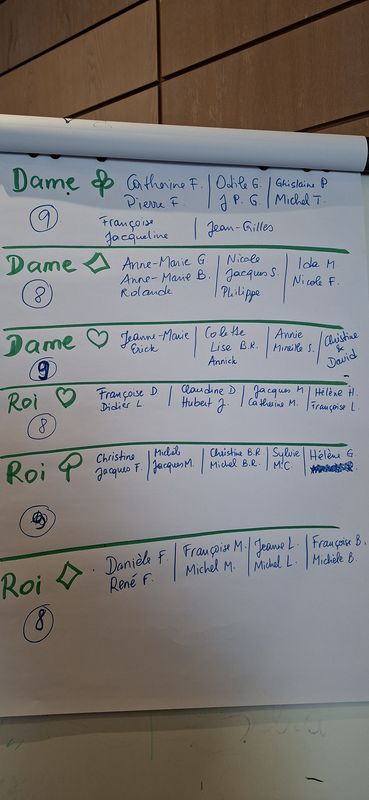 Dame ♣ Catherine F. | Odile G. | Ghislaine P
Pierre F. | J P. G. | Michel T.
9 Françoise | Jean-Gilles
Jacqueline
Dame ♢ Anne-Marie G. | Nicole | Ida M
Anne-Marie B. | Jacques S. | Nicole F.
8 Rolande | Philippe
Dame ♡ Jeanne-Marie | Colette | Annie | Christine
Erick | Lise B.R. | Mireille S. | &
9 Annick | David
Roi ♡ Françoise D | Claudine D | Jacques M | Hélène H.
Didier L. | Hubert J. | Catherine M. | Françoise L.
8
Roi Christine | Michel | Christine B.R | Sylvie | Hélène G
Jacques F. | Jacques M. | Michel B.R. | M.C.
Roi ♢ Danièle F. | Françoise M. | Jeanne L. | Françoise B.
René F. | Michel M. | Michel L. | Michèle B.
8